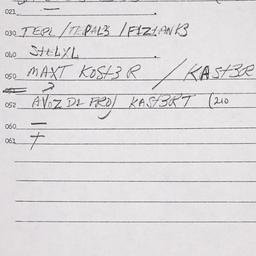 021 —
030 TEPL / TEPAL3 / FIZIANK3
040 StELXL
050 MAXT KOSt3R / KASt3R
052 AVOZ DL PROJ KASt3RT (210
060 —
061 +